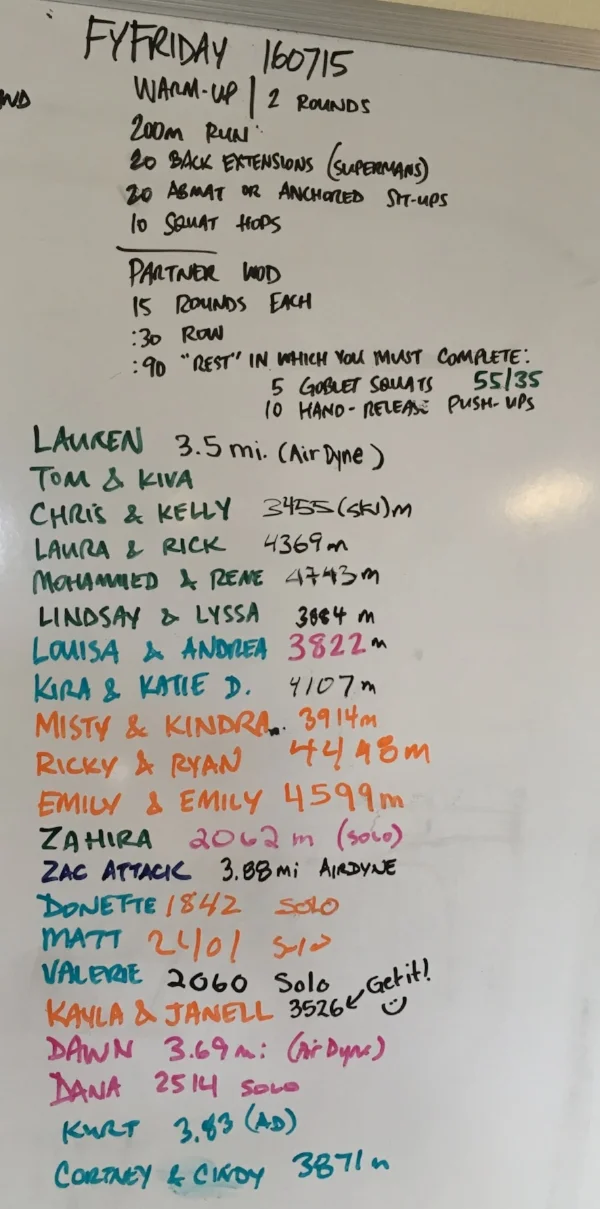 FYFRIDAY 160715
WARM-UP | 2 ROUNDS
200m RUN
20 BACK EXTENSIONS (SUPERMANS)
20 ABMAT OR ANCHORED SIT-UPS
10 SQUAT HOPS
PARTNER WOD
15 ROUNDS EACH
:30 ROW
:90 "REST" IN WHICH YOU MUST COMPLETE:
5 GOBLET SQUATS 55/35
10 HAND-RELEASE PUSH-UPS
LAUREN 3.5 mi. (AirDyne)
TOM & KIVA
CHRIS & KELLY 3455 (SKI) m
LAURA & RICK 4369m
MOHAMMED & RENE 4743m
LINDSAY & LYSSA 3884 m
LOUISA & ANDREA 3822 m
KIRA & KATIE D. 4107 m
MISTY & KINDRA 3914m
RICKY & RYAN 4498m
EMILY & EMILY 4599m
ZAHIRA 2062 m (SOLO)
ZAC ATTACK 3.88 mi AIRDYNE
DONETTE 1842 SOLO
MATT 2401 SOLO
VALERIE 2060 Solo
KAYLA & JANELL 3526 Get it!
DAWN 3.69 mi (AirDyne)
DANA 2514 SOLO
KURT 3.83 (AD)
CORTNEY & CINDY 3871 m